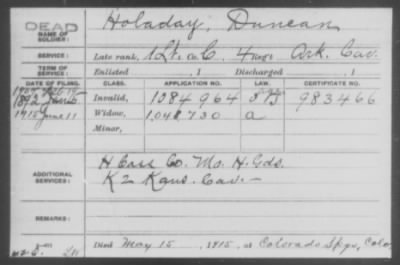 DEAD
NAME OF SOLDIER: Holaday, Duncan
SERVICE: Late rank, 1 Lt. Co. C, 4 Reg't Ark. Cav.
TERM OF SERVICE: Enlisted , 1 Discharged , 1
DATE OF FILING. CLASS. APPLICATION NO. LAW. CERTIFICATE NO.
1892 Invalid, 1084964 983466
1915 June 11 Widow, 1048730 a
Minor,
ADDITIONAL SERVICES: H Cass Co. Mo. H. Gds.
K 2 Kans. Cav. –
REMARKS:
Died May 15, 1915, at Colorado Spgs, Colo